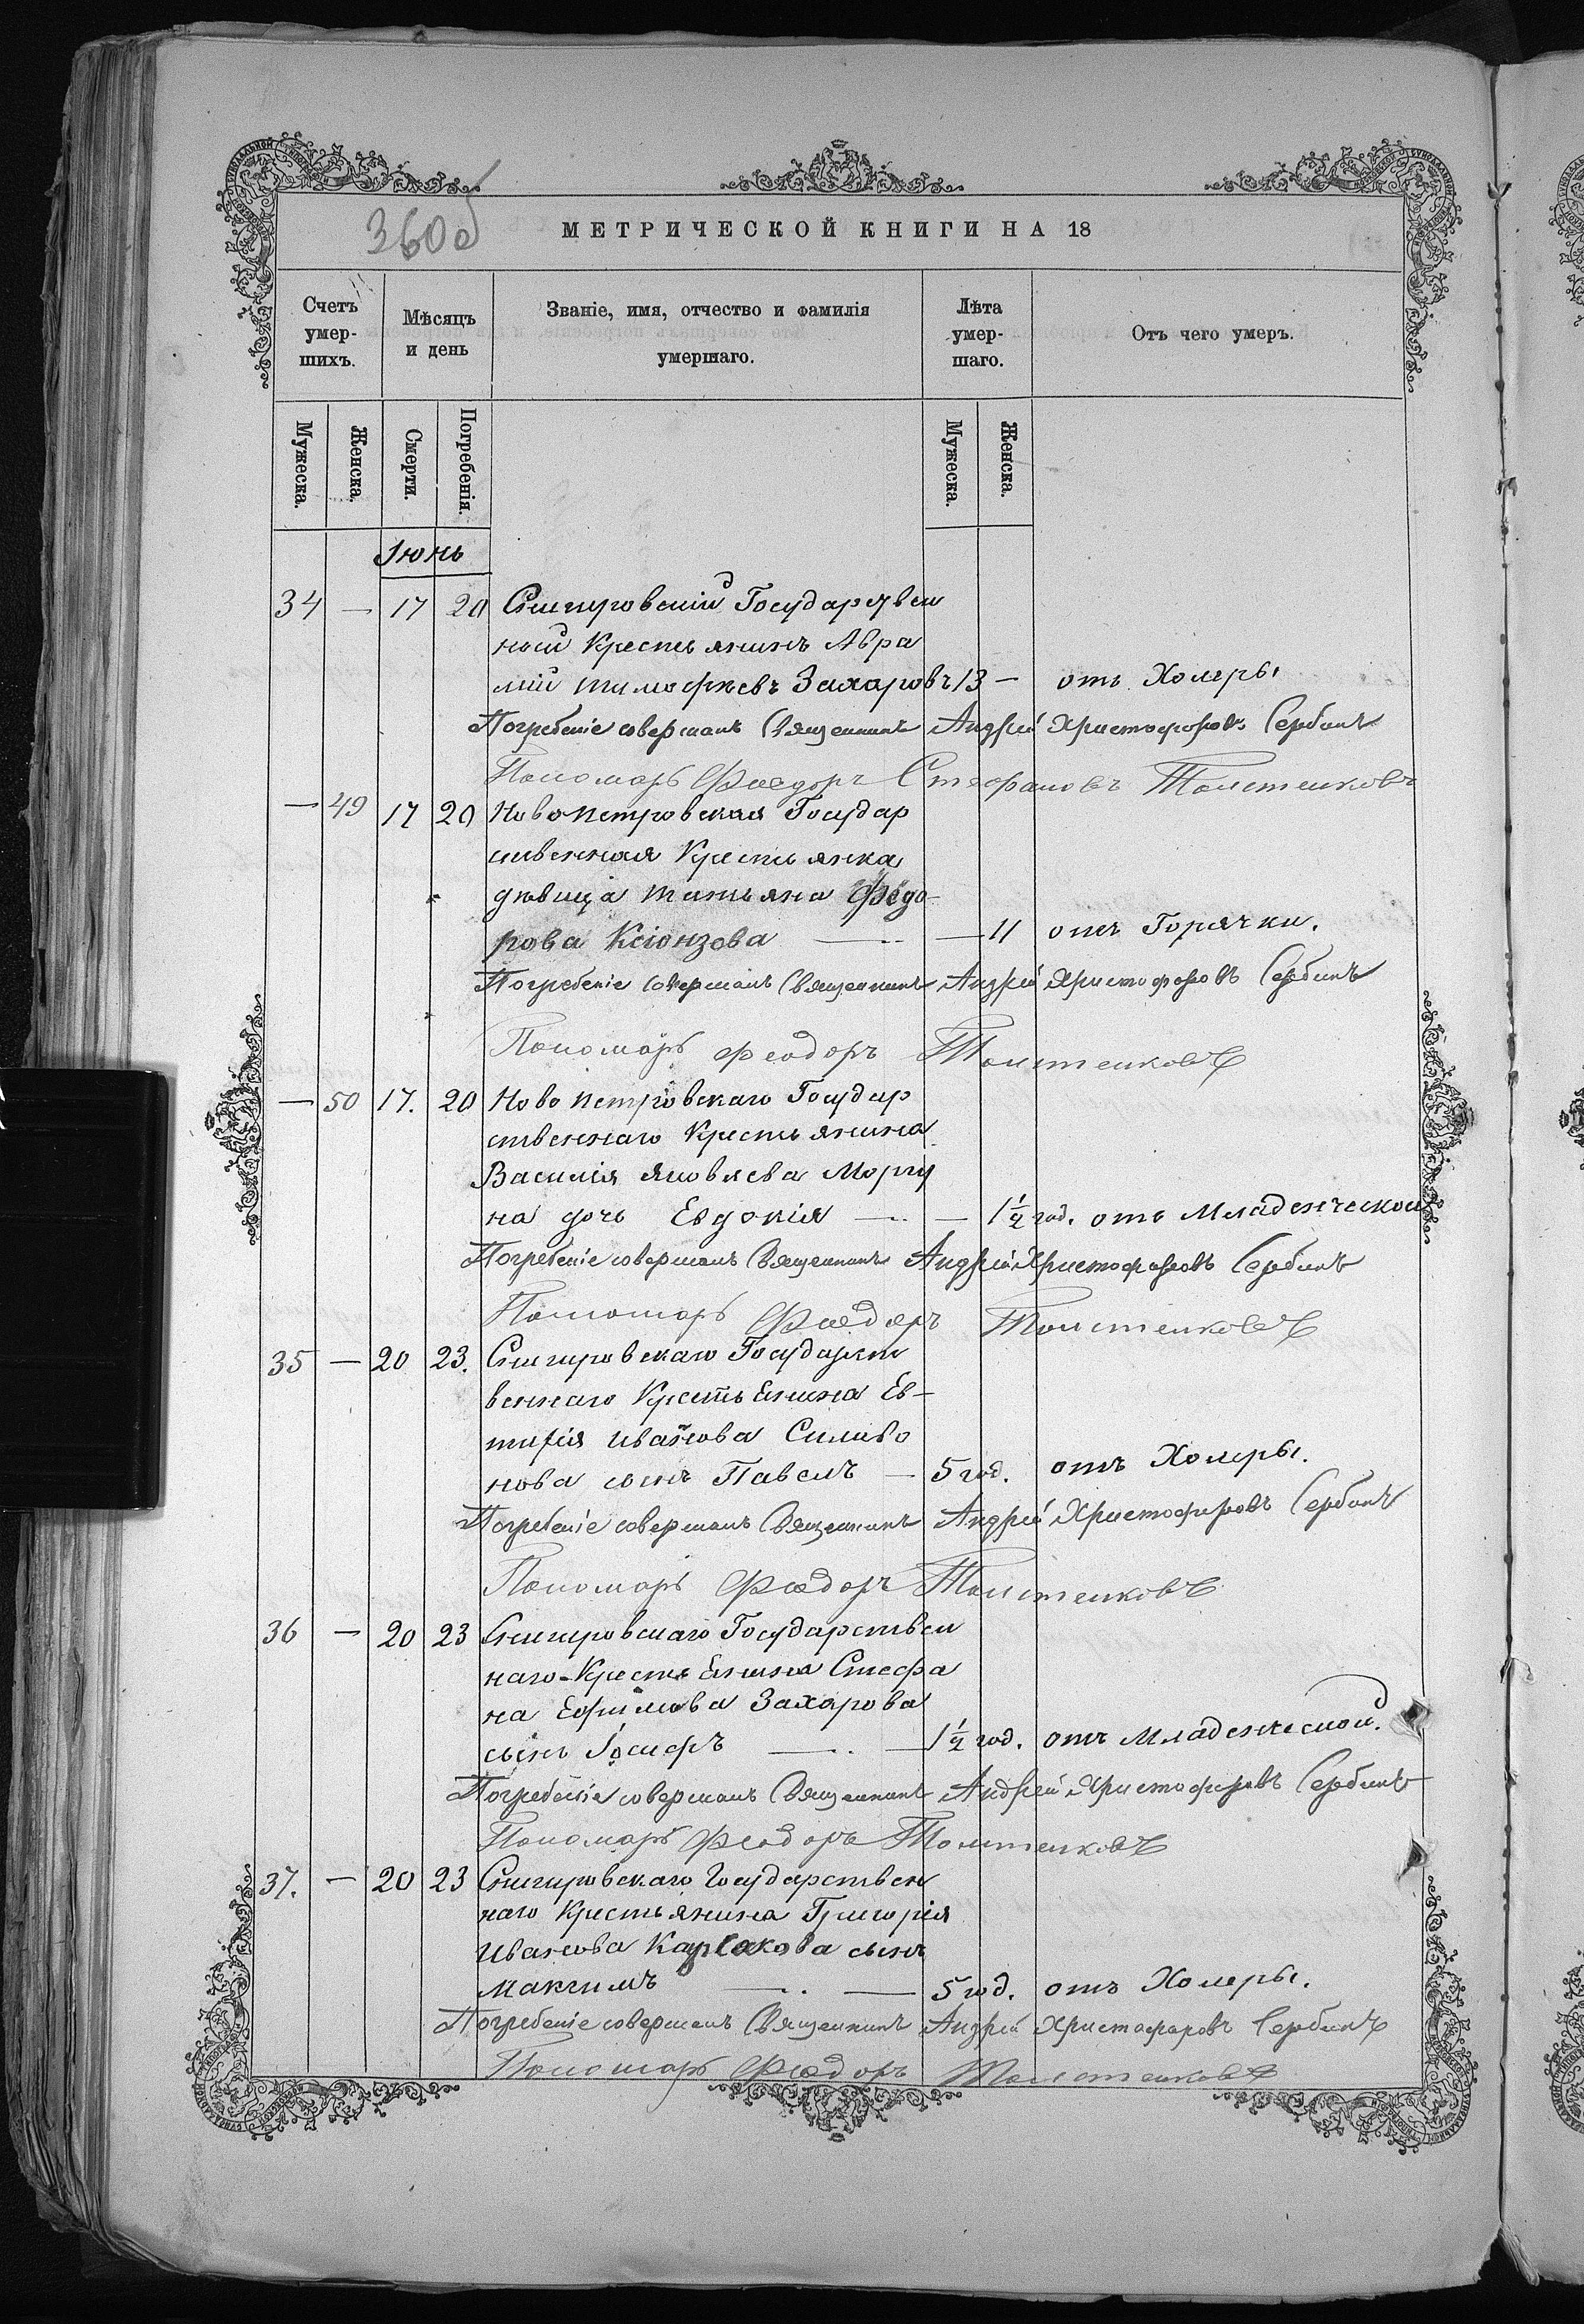 360 об
МЕТРИЧЕСКОЙ КНИГИ НА 18
Счетъ умер-шихъ.
Мѣсяцъ и день
Званіе, имя, отчество и фамилія умершаго.
Лѣта умер-шаго.
Отъ чего умеръ.
Мужеска. Женска. Смерти. Погребенія. Мужеска. Женска.
Іюнь
34 — 17 20 Снигировскій Государствен
ный Крестьянинъ Авра
мій Тимофѣевъ Захаровъ 13 — отъ Холеры
Погребеніе совершалъ Священникъ Андрей Христофоровъ Сербинъ
Пономарь Феодоръ Стефановъ Толстенковъ
— 49 17 20 Новопетровская Государ
ственная Крестьянка
дѣвица Татьяна Федо-
рова Ксіонзова — — 11 отъ Горячки.
Погребеніе совершалъ Священникъ Андрей Христофоровъ Сербинъ
Пономарь Феодоръ Толстенковъ
— 50 17. 20 Ново петровскаго Государ
ственнаго Крестьянина
Василія Яковлева Моргу
на дочь Евдокія — — 1½ год. отъ Младенческой
Погребеніе совершалъ Священникъ Андрей Христофоровъ Сербинъ
Пономарь Феодоръ Толстенковъ
35 — 20 23. Снигировскаго Государст
веннаго Крестьянина Ев-
тифія Иванова Силиво
нова сынъ Павелъ — 5 год. отъ Холеры.
Погребеніе совершалъ Священникъ Андрей Христофоровъ Сербинъ
Пономарь Феодоръ Толстенковъ
36 — 20 23 Снигировскаго Государствен
наго Крестьянина Стефа
на Ефимова Захарова
сынъ Іосифъ — — 1½ год. отъ Младенческой.
Погребеніе совершалъ Священникъ Андрей Христофоровъ Сербинъ
Пономарь Феодоръ Толстенковъ
37. — 20 23 Снигировскаго Государствен
наго Крестьянина Григорія
Иванова Карсакова сынъ
Максимъ — — 5 год. отъ Холеры.
Погребеніе совершалъ Священникъ Андрей Христофоровъ Сербинъ
Пономарь Феодоръ Толстенковъ